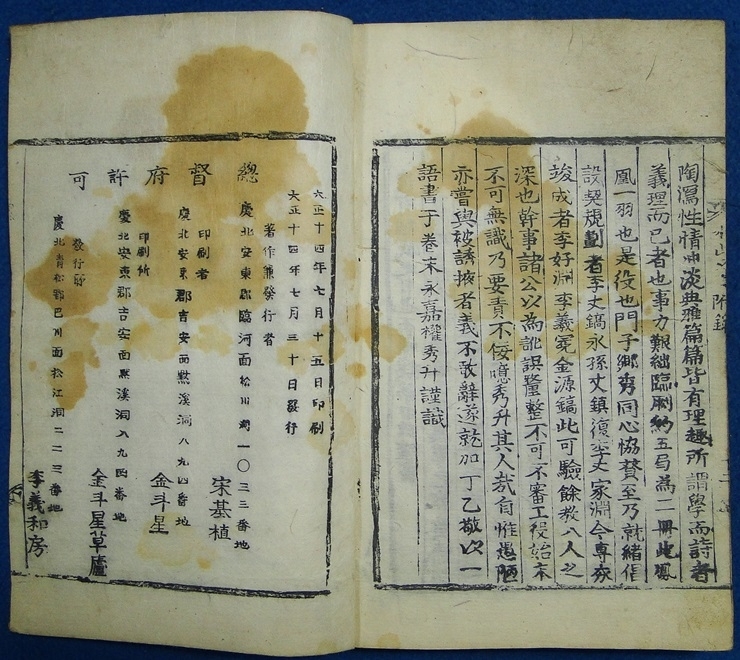 陶瀉性情冲淡典雅篇篇皆有理趣所謂學而詩者
義理而已者也事力艱絀臨剞約五局為一冊此鳳
凰一羽也是役也門子鄉秀同心協贊至乃就緒倡
設契規劃者李丈鎬永孫丈鎮復李丈家淵令專亥
竣成者李好淵李羲冕金源鎬此可驗餘敎人人之
深也幹事諸公以為訛誤釐整不可不審工役始末
不可無識乃要責不佞噫秀升其人哉自惟愚陋
亦嘗與被誘掖者義不敢辭遂就加丁乙敬次一
語書于卷末永嘉權秀升謹識
附錄
總督府許可
大正十四年七月十五日印刷
大正十四年七月三十日發行
著作兼發行者
慶北安東郡臨河面松川洞一〇三三番地
宋基植
印刷者
慶北安東郡吉安面默溪洞八九四番地
金斗星
印刷所
慶北安東郡吉安面默溪洞八九四番地
金斗星草廬
發行所
慶北靑松郡巴川面松江洞二二三番地
李義和房